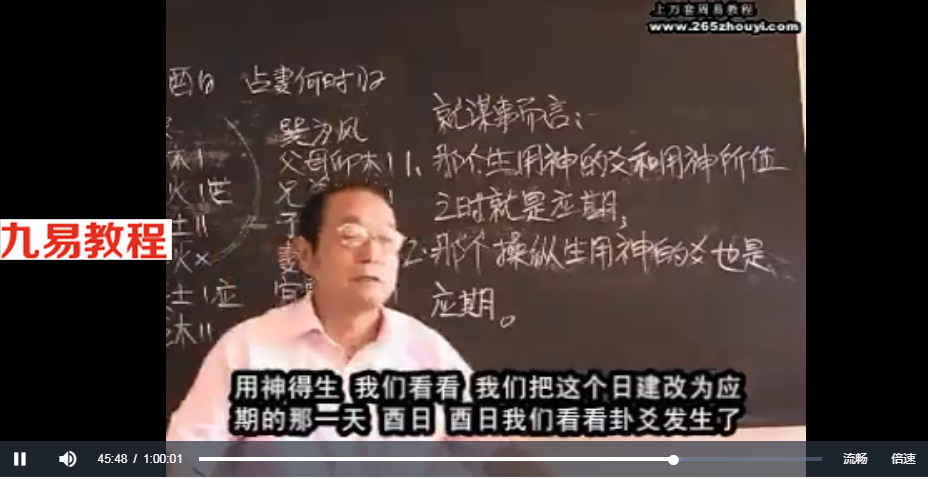 上万套周易教程
www.265zhouyi.com
酉日 占妻何时归
巽为风
父母卯木
就谋事而言:
1、那个生用神的爻和用神所值
之时就是应期;
2.那个操纵生用神的爻也是
应期。
木
火 世
土
火 ×
土 应
木
九易教程
用神得生 我们看看 我们把这个日建改为应
期的那一天 酉日 酉日我们看看卦爻发生了
45:48 / 1:00:01
流畅
倍速